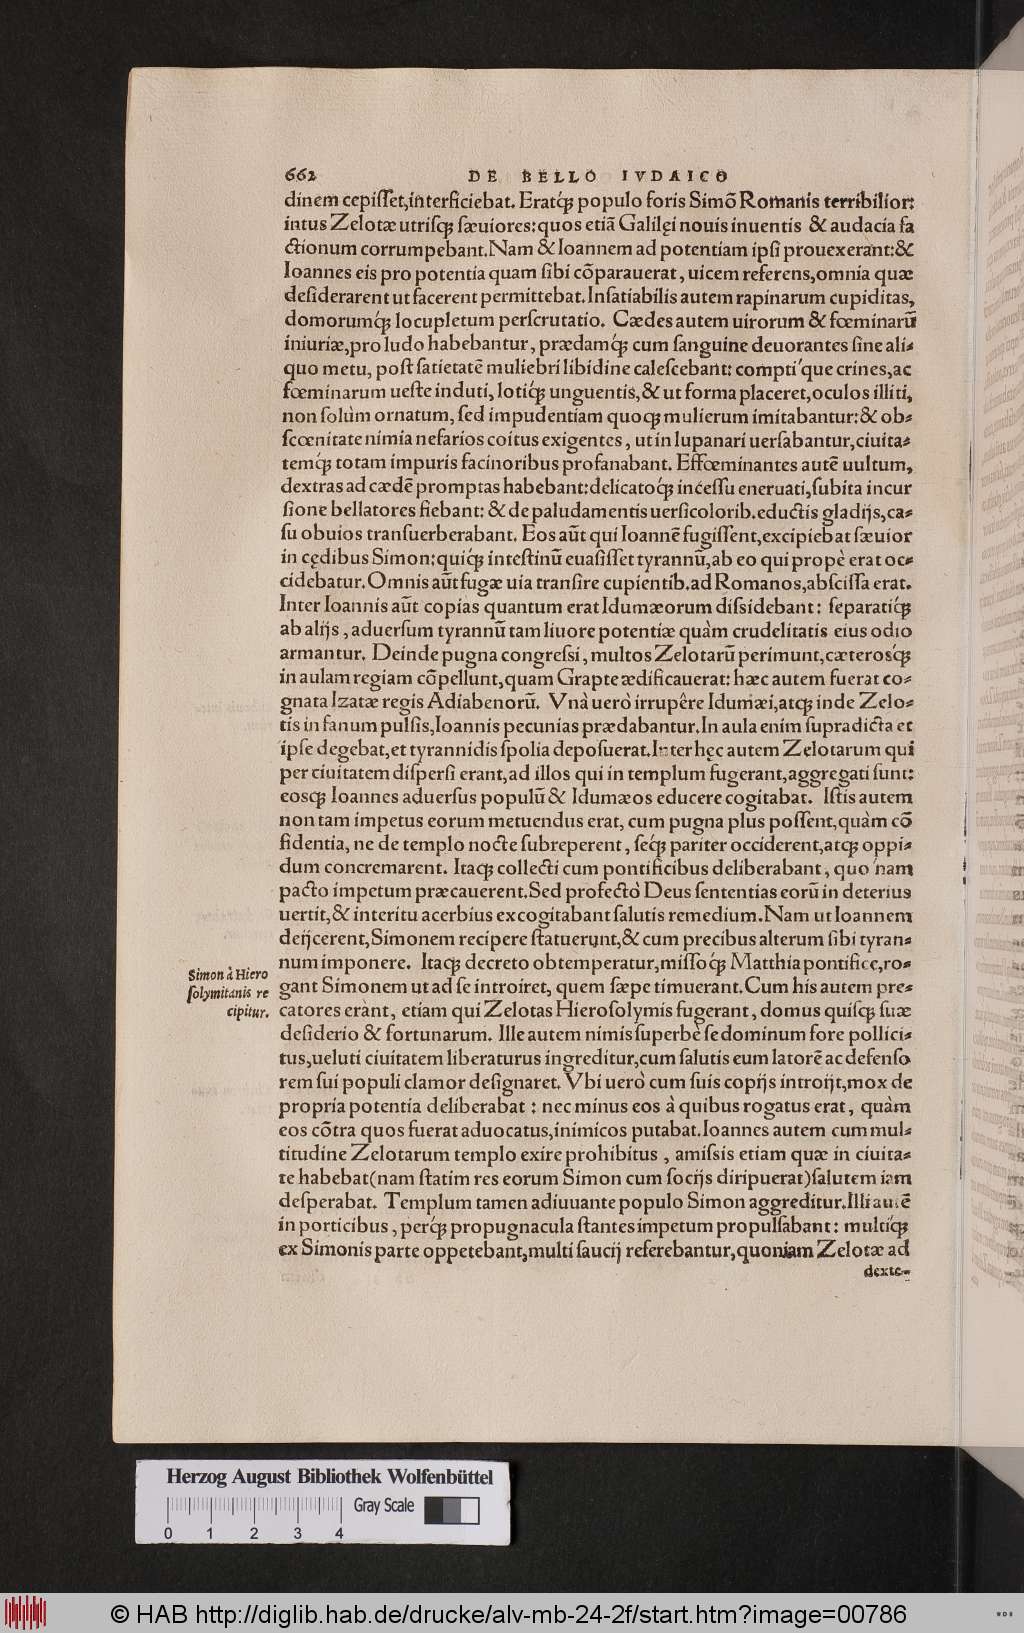 662 DE BELLO IVDAICO
dinem cepiſſet,interficiebat. Eratq́; populo foris Simõ Romanis terribilior:
intus Zelotæ utriſq; ſæuiores: quos etiã Galilęi nouis inuentis & audacia fa
ctionum corrumpebant. Nam & Ioannem ad potentiam ipſi prouexerant: &
Ioannes eis pro potentia quam ſibi cõparauerat, uicem referens, omnia quæ
deſiderarent ut facerent permittebat. Inſatiabilis autem rapinarum cupiditas,
domorumq́; locupletum perſcrutatio. Cædes autem uirorum & fœminarũ
iniuriæ, pro ludo habebantur, prædamq́; cum ſanguine deuorantes ſine ali-
quo metu, poſt ſatietatẽ muliebri libidine caleſcebant: comptíque crines, ac
fœminarum ueſte induti, lotiq́; unguentis, & ut forma placeret, oculos illiti,
non ſolùm ornatum, ſed impudentiam quoq; mulierum imitabantur: & ob-
ſcœnitate nimia nefarios coitus exigentes, ut in lupanari uerſabantur, ciuita-
temq́; totam impuris facinoribus profanabant. Effœminantes autẽ uultum,
dextras ad cædẽ promptas habebant: delicatoq́; inceſſu eneruati, ſubita incur
ſione bellatores fiebant: & de paludamentis uerſicolorib. eductis gladijs, ca-
ſu obuios tranſuerberabant. Eos aũt qui Ioannẽ fugiſſent, excipiebat ſæuior
in cędibus Simon: quiq́; inteſtinũ euaſiſſet tyrannũ, ab eo qui propè erat oc-
cidebatur. Omnis aũt fugæ uia tranſire cupientib. ad Romanos, abſciſſa erat.
Inter Ioannis aũt copias quantum erat Idumæorum diſsidebant: ſeparatiq́;
ab alijs, aduerſum tyrannũ tam liuore potentiæ quàm crudelitatis eius odio
armantur. Deinde pugna congreſsi, multos Zelotarũ perimunt, cæterosq́;
in aulam regiam cõpellunt, quam Grapte ædificauerat: hæc autem fuerat co-
gnata Izatæ regis Adiabenorũ. Vnà uerò irrupêre Idumæi, atq; inde Zelo-
tis in fanum pulſis, Ioannis pecunias prædabantur. In aula enim ſupradicta et
ipſe degebat, et tyrannidis ſpolia depoſuerat. Inter hęc autem Zelotarum qui
per ciuitatem diſperſi erant, ad illos qui in templum fugerant, aggregati ſunt:
eosq; Ioannes aduerſus populũ & Idumæos educere cogitabat. Iſtis autem
non tam impetus eorum metuendus erat, cum pugna plus poſſent, quàm cõ
fidentia, ne de templo nocte ſubreperent, ſeq́; pariter occiderent, atq; oppi-
dum concremarent. Itaq; collecti cum pontificibus deliberabant, quo ́nam
pacto impetum præcauerent. Sed profectò Deus ſententias eorũ in deterius
uertit, & interitu acerbius excogitabant ſalutis remedium. Nam ut Ioannem
deijcerent, Simonem recipere ſtatuerunt, & cum precibus alterum ſibi tyran-
num imponere. Itaq; decreto obtemperatur, miſſoq́; Matthia pontifice, ro-
Simon à Hiero
ſolymitanis re
cipitur.
gant Simonem ut ad ſe introiret, quem ſæpe timuerant. Cum his autem pre-
catores erànt, etiam qui Zelotas Hieroſolymis fugerant, domus quiſq; ſuæ
deſiderio & fortunarum. Ille autem nimis ſuperbè ſe dominum fore pollici-
tus, ueluti ciuitatem liberaturus ingreditur, cum ſalutis eum latorẽ ac defenſo
rem ſui populi clamor deſignaret. Vbi uerò cum ſuis copijs introijt, mox de
propria potentia deliberabat: nec minus eos à quibus rogatus erat, quàm
eos cõtra quos fuerat aduocatus, inimicos putabat. Ioannes autem cum mul-
titudine Zelotarum templo exire prohibitus, amiſsis etiam quæ in ciuita-
te habebat (nam ſtatim res eorum Simon cum ſocijs diripuerat) ſalutem iam
deſperabat. Templum tamen adiuuante populo Simon aggreditur. Illi autẽ
in porticibus, perq́; propugnacula ſtantes impetum propulſabant: multiq́;
ex Simonis parte oppetebant, multi ſaucij referebantur, quoniam Zelotæ ad
dexte-
Herzog August Bibliothek Wolfenbüttel
Gray Scale
0 1 2 3 4
© HAB http://diglib.hab.de/drucke/alv-mb-24-2f/start.htm?image=00786